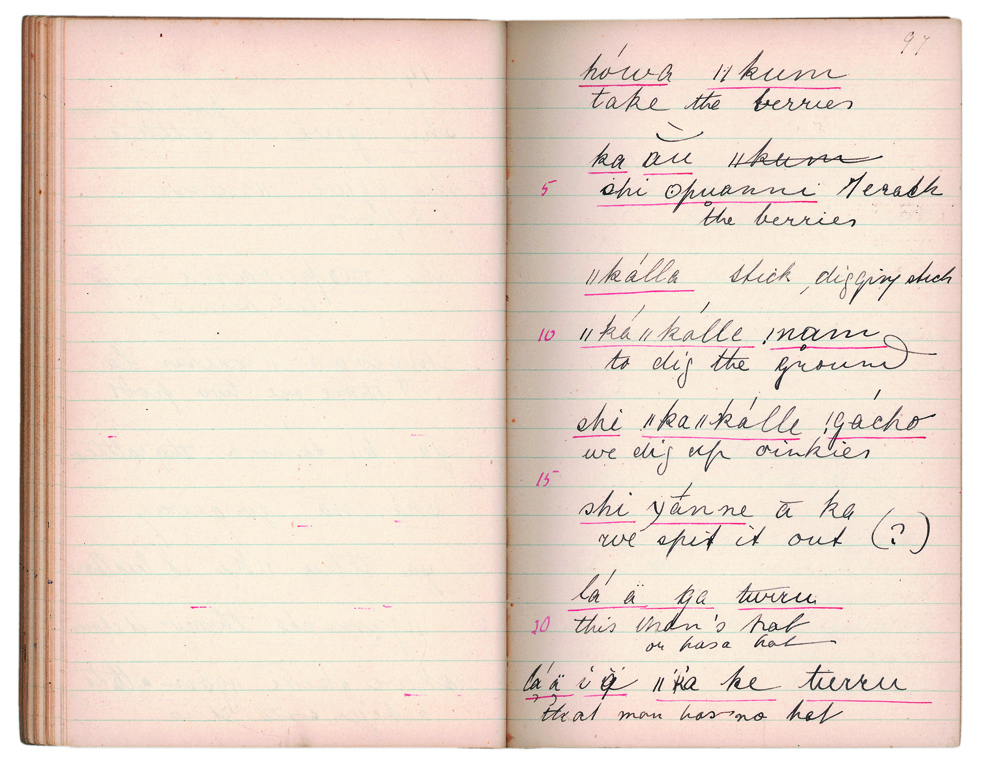 97
hówa ǁkum
take the berries
ka ăŭ ǁkum
5 shi ʘpuanni
the berries
ǁkálla stick, digging stick
10 ǁkáǁkálle !nam
to dig the ground
shi ǁkaǁkálle !gácho
we dig up oinkies
15
shi yánne ā ka
we spit it out (?)
lá ä ga turru
20 this man's hat
or has a hat
lá ä ǁka ke turru
that man has no hat